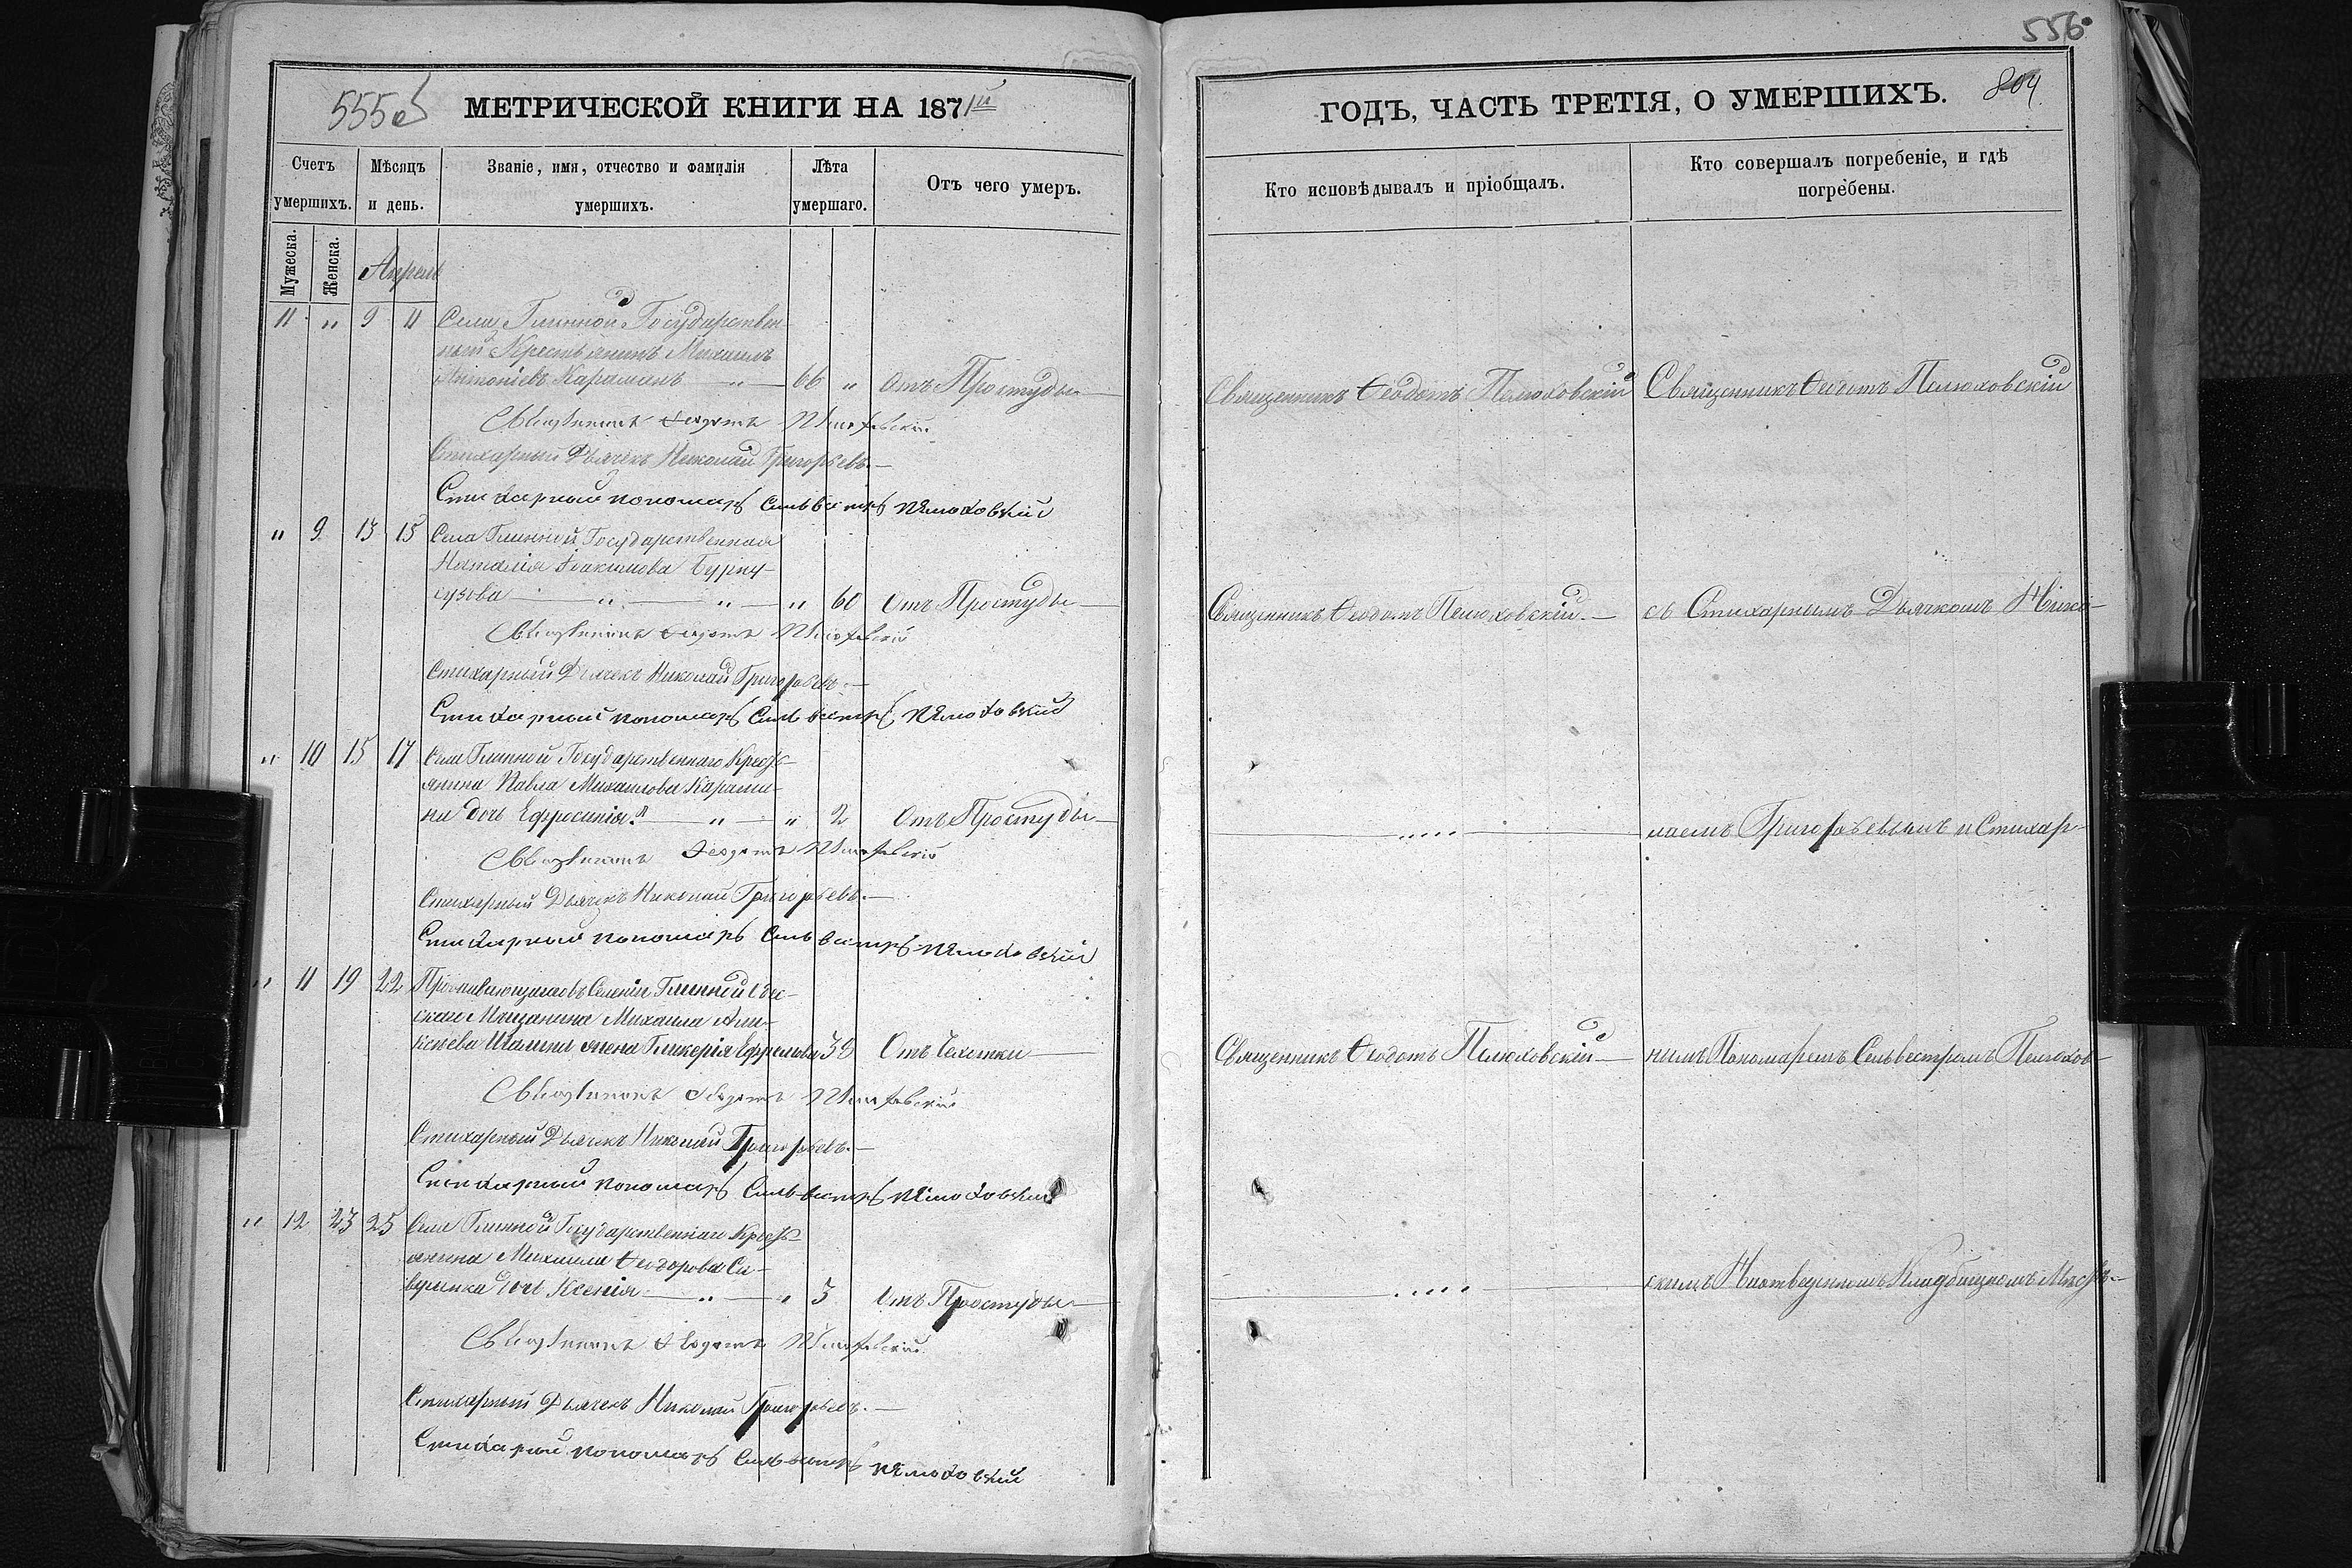 555 об
МЕТРИЧЕСКОЙ КНИГИ НА 1871й
Счетъ умершихъ.
Мѣсяцъ и день.
Званіе, имя, отчество и фамилія умершихъ.
Лѣта умершаго.
Отъ чего умеръ.
Мужеска.
Женска.
Апрель
11 „ 9 11 Села Глинной Государствен-
ный Крестьянинъ Михаилъ
Антоніевъ Караманъ — „ — 66 „ Отъ Простуды
Священникъ Ѳеодотъ Пелюховскій
Стихарный Дьячекъ Николай Григорьевъ.—
Стихарный пономарь Сильвестръ Пелюховскій
„ 9 13 15 Села Глинной Государственная
Наталія Іоакимова Бурну-
сузова — „ — „ — „ 60 Отъ Простуды
Священникъ Ѳеодотъ Пелюховскій
Стихарный Дьячекъ Николай Григорьевъ.—
Стихарный пономарь Сильвестръ Пелюховскій
„ 10 15 17 Села Глинной Государственнаго Кресть-
янина Павла Михаилова Карама-
на дочь Ефросинія. — „ — „ 2 Отъ Простуды
Священникъ Ѳеодотъ Пелюховскій
Стихарный Дьячекъ Николай Григорьевъ.—
Стихарный пономарь Сильвестръ Пелюховскій
„ 11 19 22 Проживающаго въ Селеніи Глинной Оде-
скаго Мѣщанина Михаила
жена Гликерія Ефремова 38 Отъ Чахотки
Священникъ Ѳеодотъ Пелюховскій
Стихарный Дьячекъ Николай Григорьевъ.—
Стихарный пономарь Сильвестръ Пелюховскій
„ 12 23 25 Села Глинной Государственнаго Кресть-
янина Михаила Ѳеодорова
дочь Ксенія — „ — „ 3 Отъ Простуды
Священникъ Ѳеодотъ Пелюховскій
Стихарный Дьячекъ Николай Григорьевъ.—
Стихарный пономарь Сильвестръ Пелюховскій
556
804
ГОДЪ, ЧАСТЬ ТРЕТІЯ, О УМЕРШИХЪ.
Кто исповѣдывалъ и пріобщалъ.
Кто совершалъ погребеніе, и гдѣ погребены.
Священникъ Ѳеодотъ Пелюховскій Священникъ Ѳеодотъ Пелюховскій
Священникъ Ѳеодотъ Пелюховскій.— съ Стихарнымъ Дьячкомъ Нико-
..... лаемъ Григорьевымъ и Стихар-
Священникъ Ѳеодотъ Пелюховскій — нымъ Пономаремъ Сельвестромъ Пелюхов-
..... скимъ На отведенномъ Кладбищномъ Мѣстѣ.—